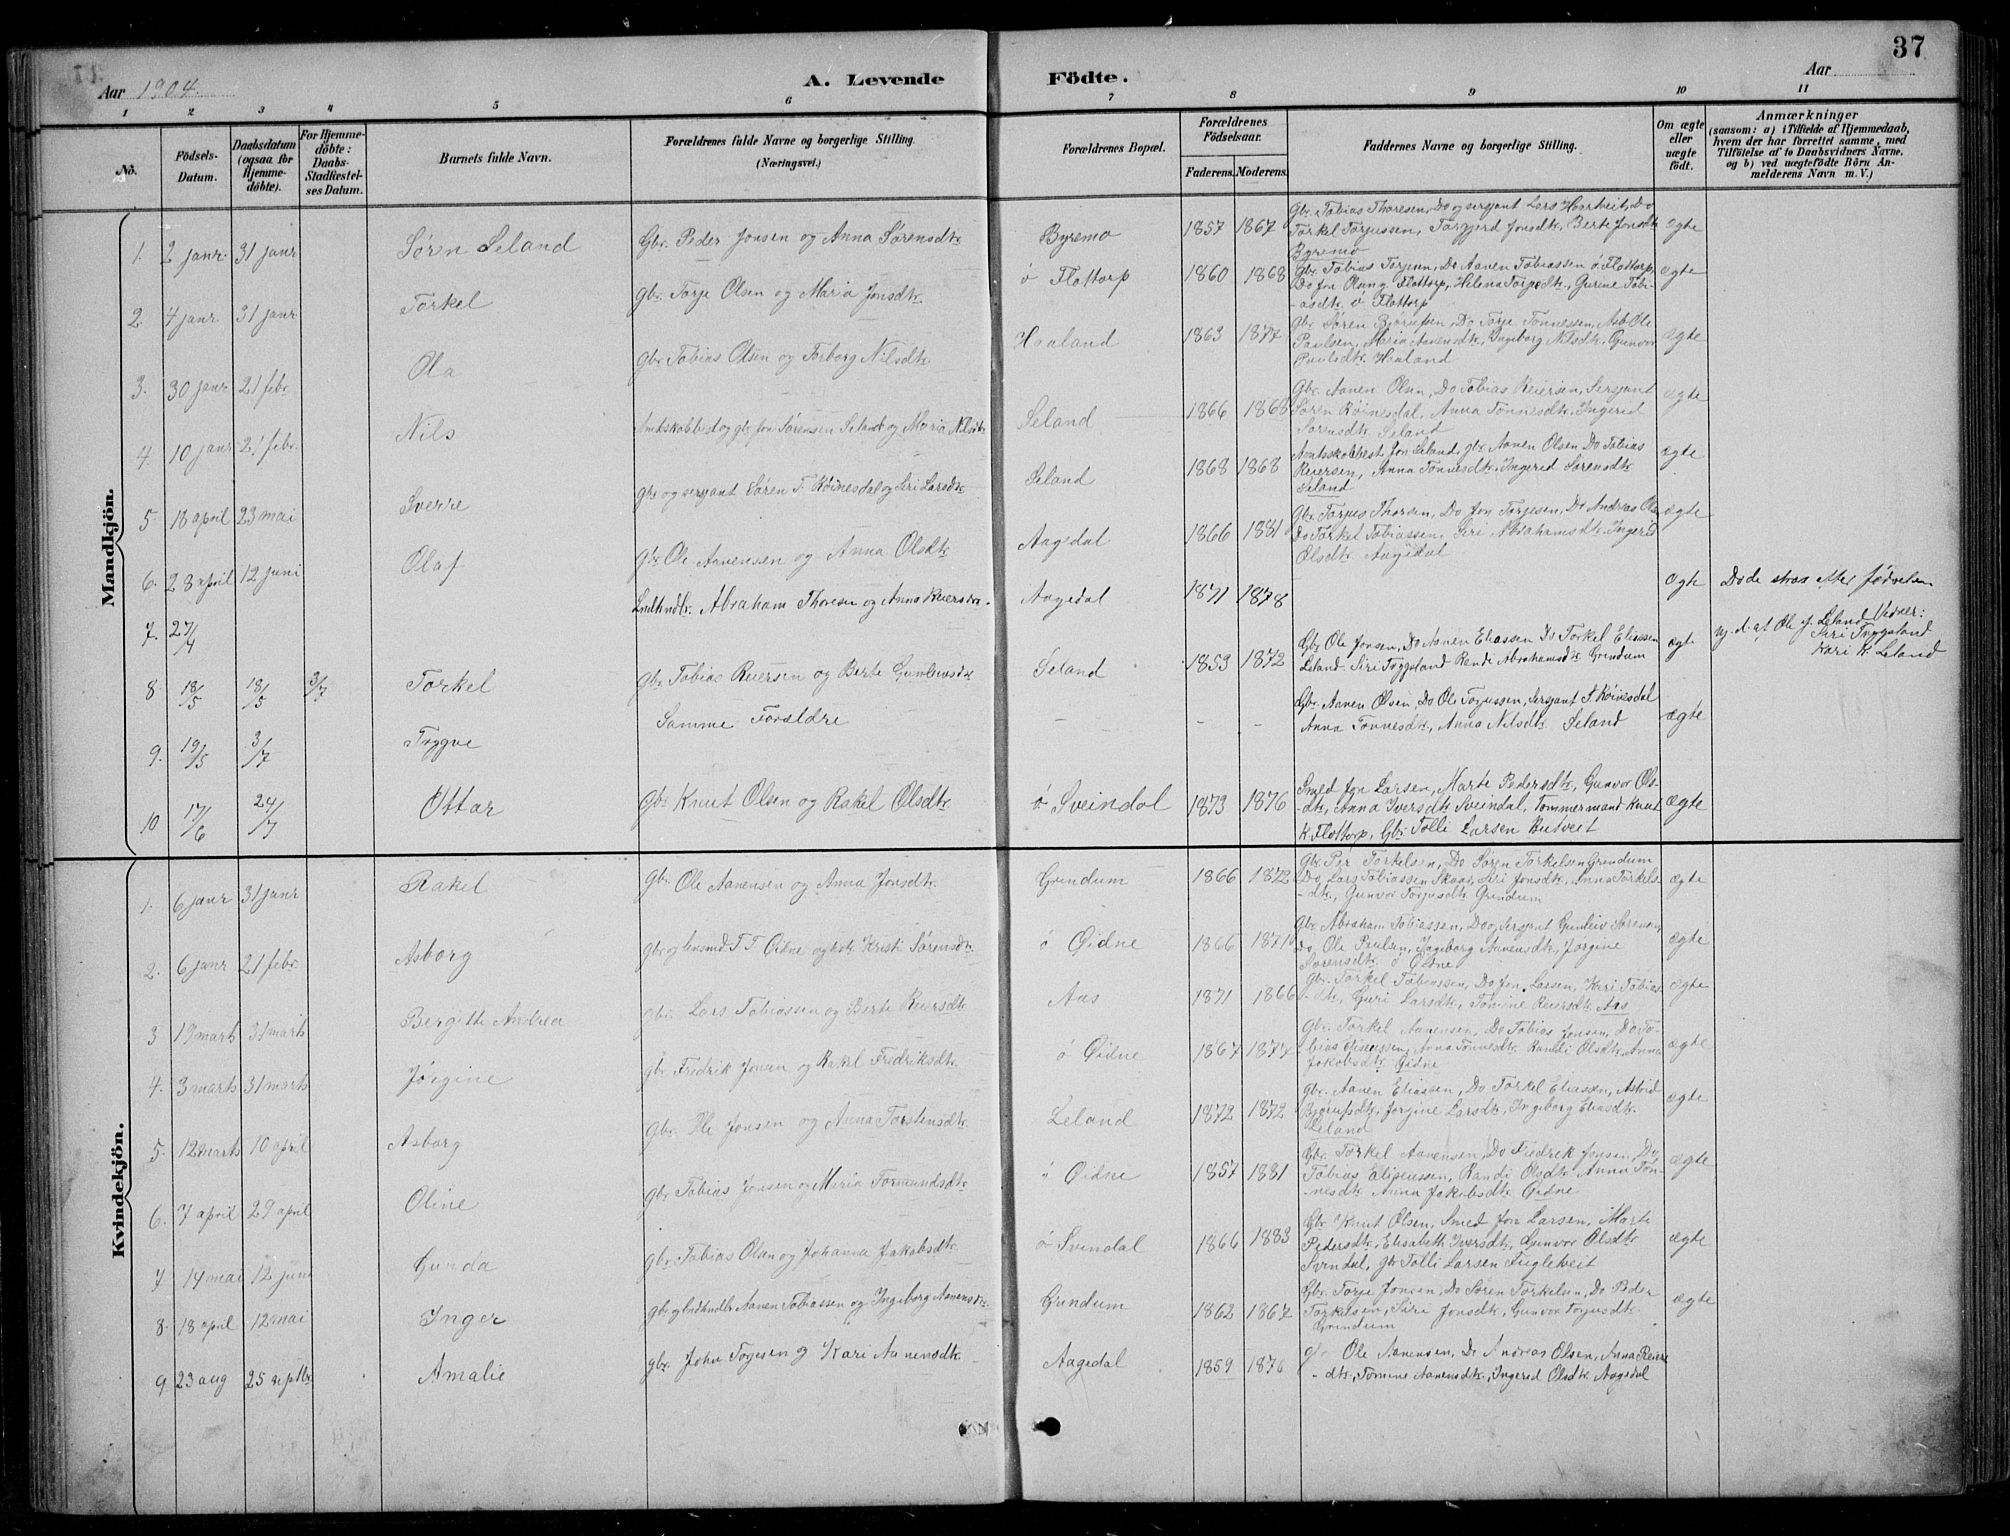 37
Aar 1904.
A. Levende Födte.
Aar
1 2 3 4 5 6 7 8 9 10 11
No.
Födsels-Datum.
Daabsdatum (ogsaa for Hjemme-döbte).
For Hjemme-döbte: Daabs-Stadfæstel-ses Datum.
Barnets fulde Navn.
Forældrenes fulde Navne og borgerlige Stilling. (Næringsvei.)
Forældrenes Bopæl.
Forældrenes Födselsaar.
Faderens. Moderens.
Faddernes Navne og borgerlige Stilling.
Om ægte eller uægte födt.
Anmærkninger (saasom: a) i Tilfælde af Hjemmedaab, hvem der har forrettet samme, med Tilföielse af to Daabsvidners Navne. og b) ved uægtefödte Börn An-melderens Navn m. V.)
Mandkjön.
1. 2 janr. 31 janr Søren Seland Gbr. Peder Jonsen og Anna Sørensdtr. Byremo 1857 1867 Gbr. Tobias Thoresen, Do og sersjant Lars Haarkveit, Do
Torkel Torjussen, Torgjerd Jonsdtr., Berte Jonsdtr. ægte
Byremo
2. 4 janr. 31 janr Torkel Gbr. Torje Olsen og Maria Jonsdtr. ö Flottorp 1860 1868 Gbr. Tobias Torjesen, Do Aanen Tobiassen ö Flottorp, ægte
Do Jon Olsen y. Flottorp, Helena Torjesdtr., Gurine Tobi-
-asdtr. ö Flottorp
3. 30 janr 21 febr. Ola Gbr. Tobias Olsen og Torborg Nilsdtr. Haaland 1863 1877 Gbr. Søren Bjørufsen, Do Torje Tønnessen, Arb. Ole
Paulsen, Maria Aanensdtr., Ingeborg Nilsdtr., Gunvor ægte
Paulsdtr. Haaland
4. 10 janr 21 febr. Nils Amtskolebest. og gbr. Jon Sørensen Seland og Maria Nilsdtr. Seland 1866 1868 Gbr. Aanen Olsen, Do Tobias Reiersen, Sersjant ægte
Søren Røinesdal, Anna Tønnesdtr., Ingerid
Sørensdtr. Seland
5. 18 april 23 mai Sverre Gbr. og sersjant Søren T. Røinesdal og Siri Larsdtr. Seland 1868 1868 Amtskolebest. Jon Seland, gbr. Aanen Olsen, Do Tobias
Reiersen, Anna Tønnesdtr., Ingerid Sørensdtr. ægte
Seland
6. 28 april 12 juni Olaf Gbr. Ole Aanensen og Anna Olsdtr. Aagedal 1866 1881 Gbr. Torjus Thorsen, Do Jon Torjesen, Do Andreas Ols. ægte
Do Torkel Tobiassen, Siri Abrahamsdtr., Ingerid
Olsdtr. Aagedal
7. 27/4 Lndhndlr. Abraham Thoresen og Anna Reiersdtr. Aagedal 1871 1878 ægte Døde strax efter fødselen
8. 18/5 18/5 3/7 Torkel Gbr. Tobias Reiersen og Berte Gunleivsdtr. Seland 1853 1872 Gbr. Ole Jonsen, Do Aanen Eliassen Do Torkel Eliassen
Seland. Siri Tryggeland Randi Abrahamsdtr. Grundum ægte Hj. d. af Ole J. Seland Vidner:
Siri Tryggeland
Kari K. Seland
9. 19/5 3/7 Trygve Samme Forældre - - - Gbr. Aanen Olsen, Do Ole Torjussen, Sersjant S. Røinesdal
Anna Tønnesdtr., Anna Nilsdtr. Seland ægte
10 17/6 24/7 Ottar Gbr. Knut Olsen og Rakel Olsdtr. ö Sveindal 1873 1876 Smed Jon Larsen, Marte Pedersdtr., Gunvor Ols-
-dtr., Anna Iversdtr. Sveindal, Tømmermand Knut ægte
K. Flottorp, Gbr. Tolli Larsen Butveit
Kvindekjön.
1. 6 janr 31 janr Rakel Gbr. Ole Aanensen og Anna Jonsdtr. Grindum 1866 1872 Gbr. Per Torkelsen, Do Søren Torkelsen Grendum
Do Lars Tobiassen Skaar, Siri Jonsdtr., Anna Torkels- ægte
-dtr., Gunvor Torjusdtr. Grindum
2. 6 janr 21 febr. Asborg Gbr og lensmd T. T. Øidne og kstr. Kristi Sørensdtr. ö Øidne 1866 1871 Gbr. Abraham Tobiassen, Do o, Sersjant Gunleiv Sørensen,
Do Ole Paulsen, Ingeborg Aanensdtr., Jørgine ægte
Sørensdtr. ö Øidne
3 19 marts 31 marts Bergitte Andrea Gbr. Lars Tobiassen og Berte Reiersdtr. Aas 1871 1866 Gbr. Torkel Tobiassen, Do Jon Larsen, Kari Tobias- ægte
-dtr., Guri Larsdtr., Tomine Reiersdtr. Aas
4. 3 marts 31 marts Jørgine Gbr. Fredrik Jonsen og Rakel Fredriksdtr. ö Øidne 1867 1877 Gbr. Torkel Aanensen, Do Tobias Jonsen, Do To-
bias Eliseussen, Anna Tønnesdtr. Randi Olsdtr., Anna ægte
Jakobsdtr. Øidne
5. 12 marts 10 april Asborg Gbr. Ole Jonsen og Anna Torstensdtr. Seland 1872 1872 Gbr. Aanen Eliassen, Do Torkel Eliassen, Astrid
Bjørufsdtr. Jørgine Larsdtr., Ingeborg Eliasdtr. ægte
Seland
6. 7 april 29 april Oline Gbr. Tobias Jonsen og Maria Tormundsdtr. " Øidne 1857 1881 Gbr. Torkel Aanensen, Do Fredrik Jonsen, Do
Tobias Eliseussen, Randi Olsdtr. Anna Tøn- ægte
-nesdtr. Anna Jakobsdtr. Øidne
7 14 mai 12 juni Gunda Gbr. Tobias Olsen og Johanna Jakobsdtr. ö Svendal 1866 1883 Gbr. Knut Olsen, Smed Jon Larsen, Marte
Pedersdtr., Elisabeth Iversdtr., Gunvor Olsdtr. ægte
Svendal, gbr Tolli Larsen Fugleveit
8. 18 april 12 mai Inger Gbr og lndhndlr Aanen Tobiassen og Ingeborg Aanensdtr. Grindum 1862 1867 Gbr. Torje Jonsen, Do Søren Torkelsen, Do Peder
Torkelsen, Siri Jonsdtr., Gunvor Torjusdtr. ægte
Grindum
9. 23 aug 25 septbr. Amalie Gbr. John Torjesen og Kari Aanensdtr. Aagedal 1859 1876 Gbr Ole Aanensen, Do Andreas Olsen, Anna Reiers
-dtr., Tomine Aanensdtr., Ingerid Olsdtr. Aagedal